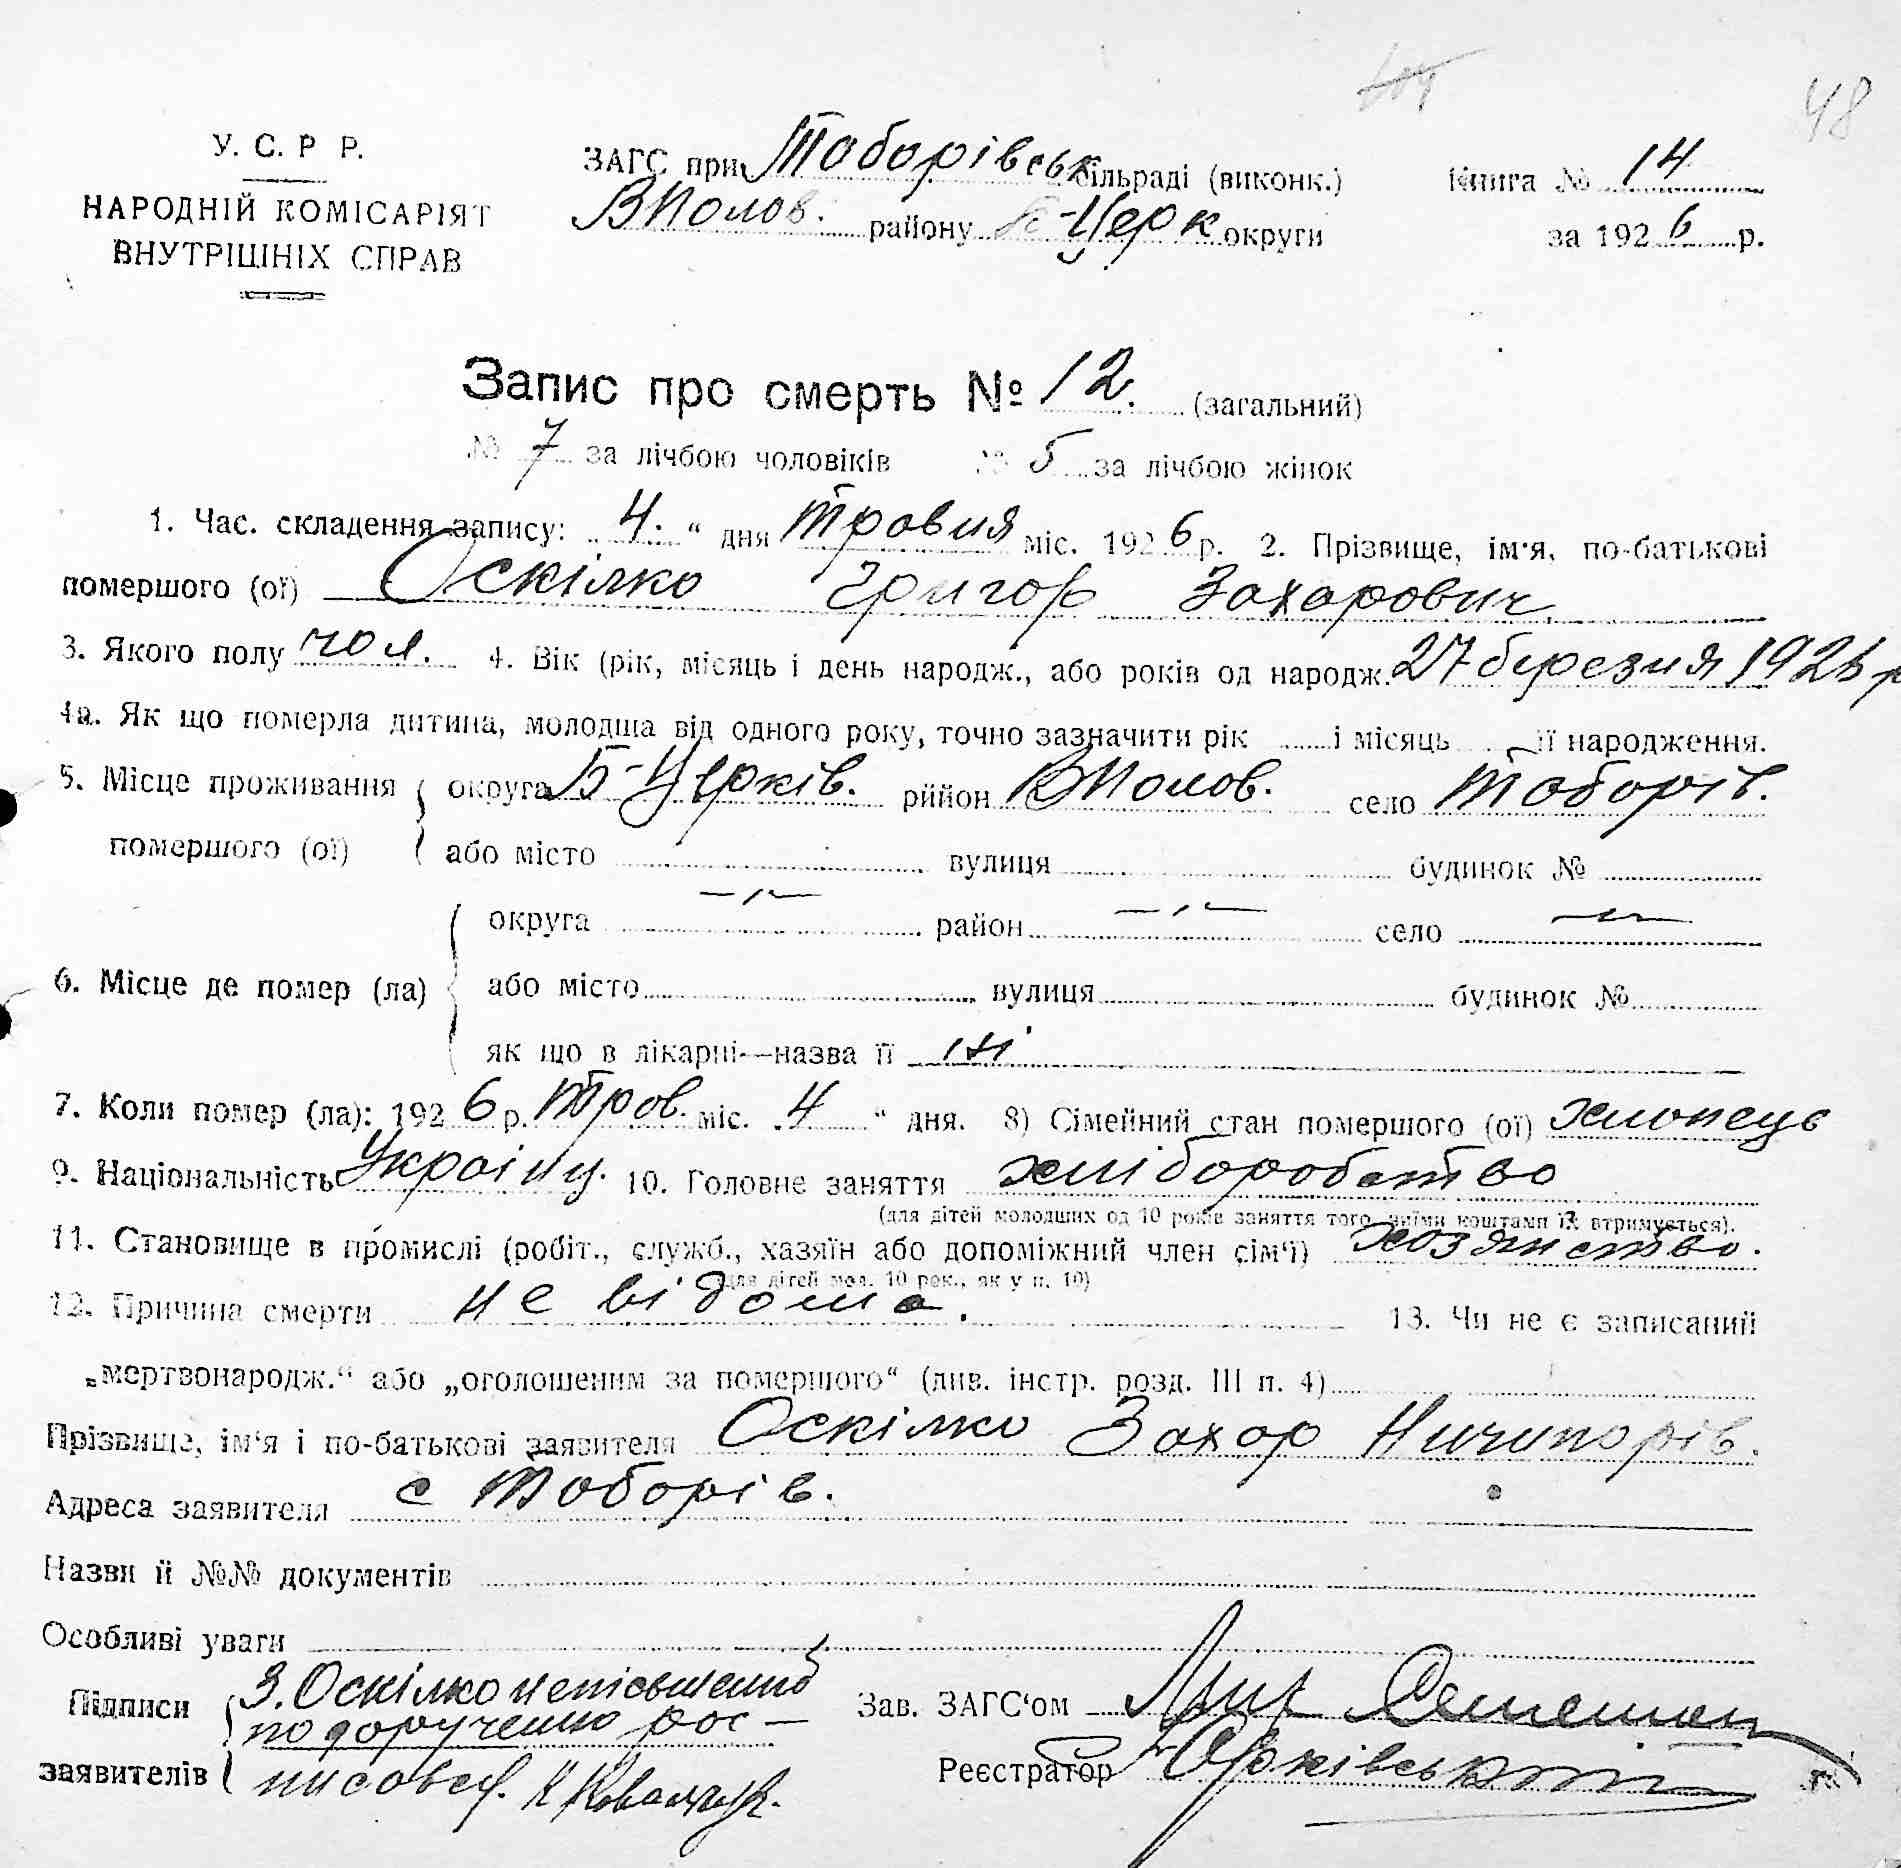 48
У. С. Р. Р.
НАРОДНІЙ КОМІСАРІЯТ
ВНУТРІШНІХ СПРАВ
ЗАГС при Таборівськ сільраді (виконк.)
ВПолов. району Б-Церк округи
Книга № 14
за 1926 р.
Запис про смерть № 12. (загальний)
№ 7 за лічбою чоловіків № 5 за лічбою жінок
1. Час. складення запису: 4. “ дня Травня міс. 1926 р. 2. Прізвище, ім'я, по-батькові
помершого (ої) Оскілко Григор Захарович
3. Якого полу чол. 4. Вік (рік, місяць і день народж., або років од народж. 27 березня 1926 р
4а. Як що померла дитина, молодша від одного року, точно зазначити рік і місяць її народження.
5. Місце проживання округа Б-Церків. район ВПолов. село Таборів.
помершого (ої) або місто вулиця будинок №
округа —"— район —"— село —"—
6. Місце де помер (ла) або місто вулиця будинок №
як що в лікарні—назва її ні
7. Коли помер (ла): 1926 р. Трав. міс. 4 “ дня. 8) Сімейний стан помершого (ої) хлопець
9. Національність Україну. 10. Головне заняття хліборобство
(для дітей молодших од 10 років заняття того, чиїми коштами їх втримується).
11. Становище в промислі (робіт., служб., хазяїн або допоміжний член сім'ї) хозянство.
(для дітей мол. 10 рок., як у п. 10)
12. Причина смерти не відома. 13. Чи не є записаний
„мертвонародж.“ або „оголошеним за помершого“ (див. інстр. розд. III п. 4)
Прізвище, ім'я і по-батькові заявителя Оскілко Захар Ничипорів.
Адреса заявителя с Таборів.
Назви й №№ документів
Особливі уваги
Підписи З. Оскілко непісьменний
по дорученню рос-
заявителів писався. К Ковальчук.
Зав. ЗАГС'ом
Реєстратор